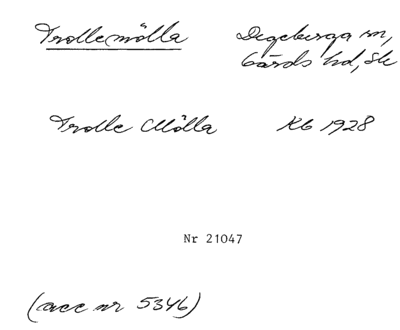 Trollemölla Degeberga sn,
Gärds hd, Sk
Trolle Mölla Kb 1928
Nr 21047
(acc nr 5346)